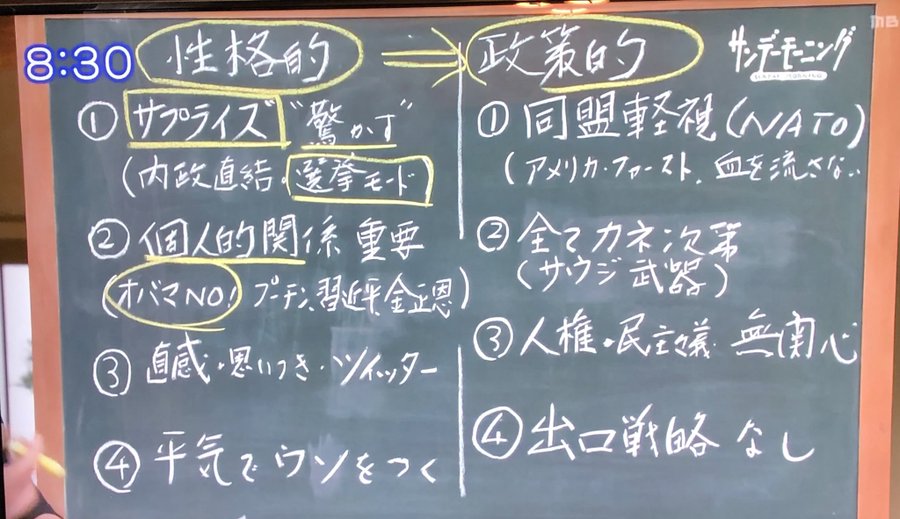 8:30
MB
サンデーモーニング
SUNDAY MORNING
性格的 ⇒ 政策的
① サプライズ "驚かす"
(内政直結・選挙モード)
② 個人的関係 重要
(オバマNO! プーチン、習近平、金正恩)
③ 直感・思いつき・ツイッター
④ 平気でウソをつく
① 同盟軽視(NATO)
(アメリカ・ファースト、血を流さない
② 全てカネ次第
(サウジ武器)
③ 人権・民主主義 無関心
④ 出口戦略 なし